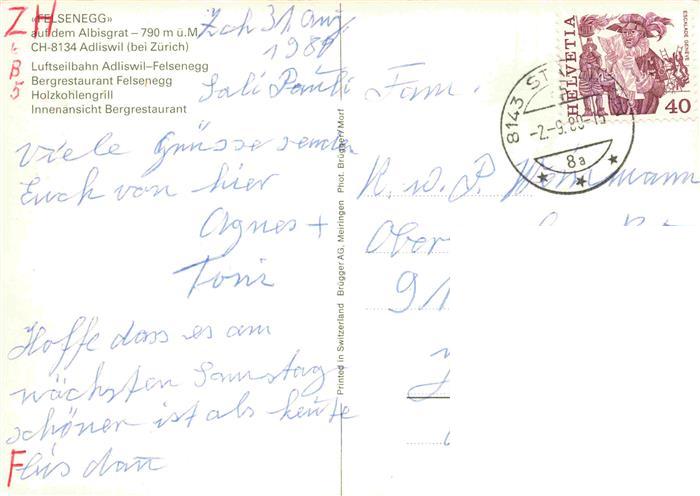 ZH
LB
5
F
«FELSENEGG»
auf dem Albisgrat – 790 m ü.M.
CH-8134 Adliswil (bei Zürich)
Luftseilbahn Adliswil–Felsenegg
Bergrestaurant Felsenegg
Holzkohlengrill
Innenansicht Bergrestaurant
Zch 31 Aug.
Sali Pauli
Viele Grüsse senden
Euch von hier
Agnes +
Toni
Hoffe dass es am
nächsten Samstag
schöner ist als heute
bis dann
Printed in Switzerland Brügger AG, Meiringen Phot. Brügger/Morf
Fam.
R. u. P.
Ober
HELVETIA
ESCALADE GENÈVE
40
8143 ST
-2.-9.80-
8a